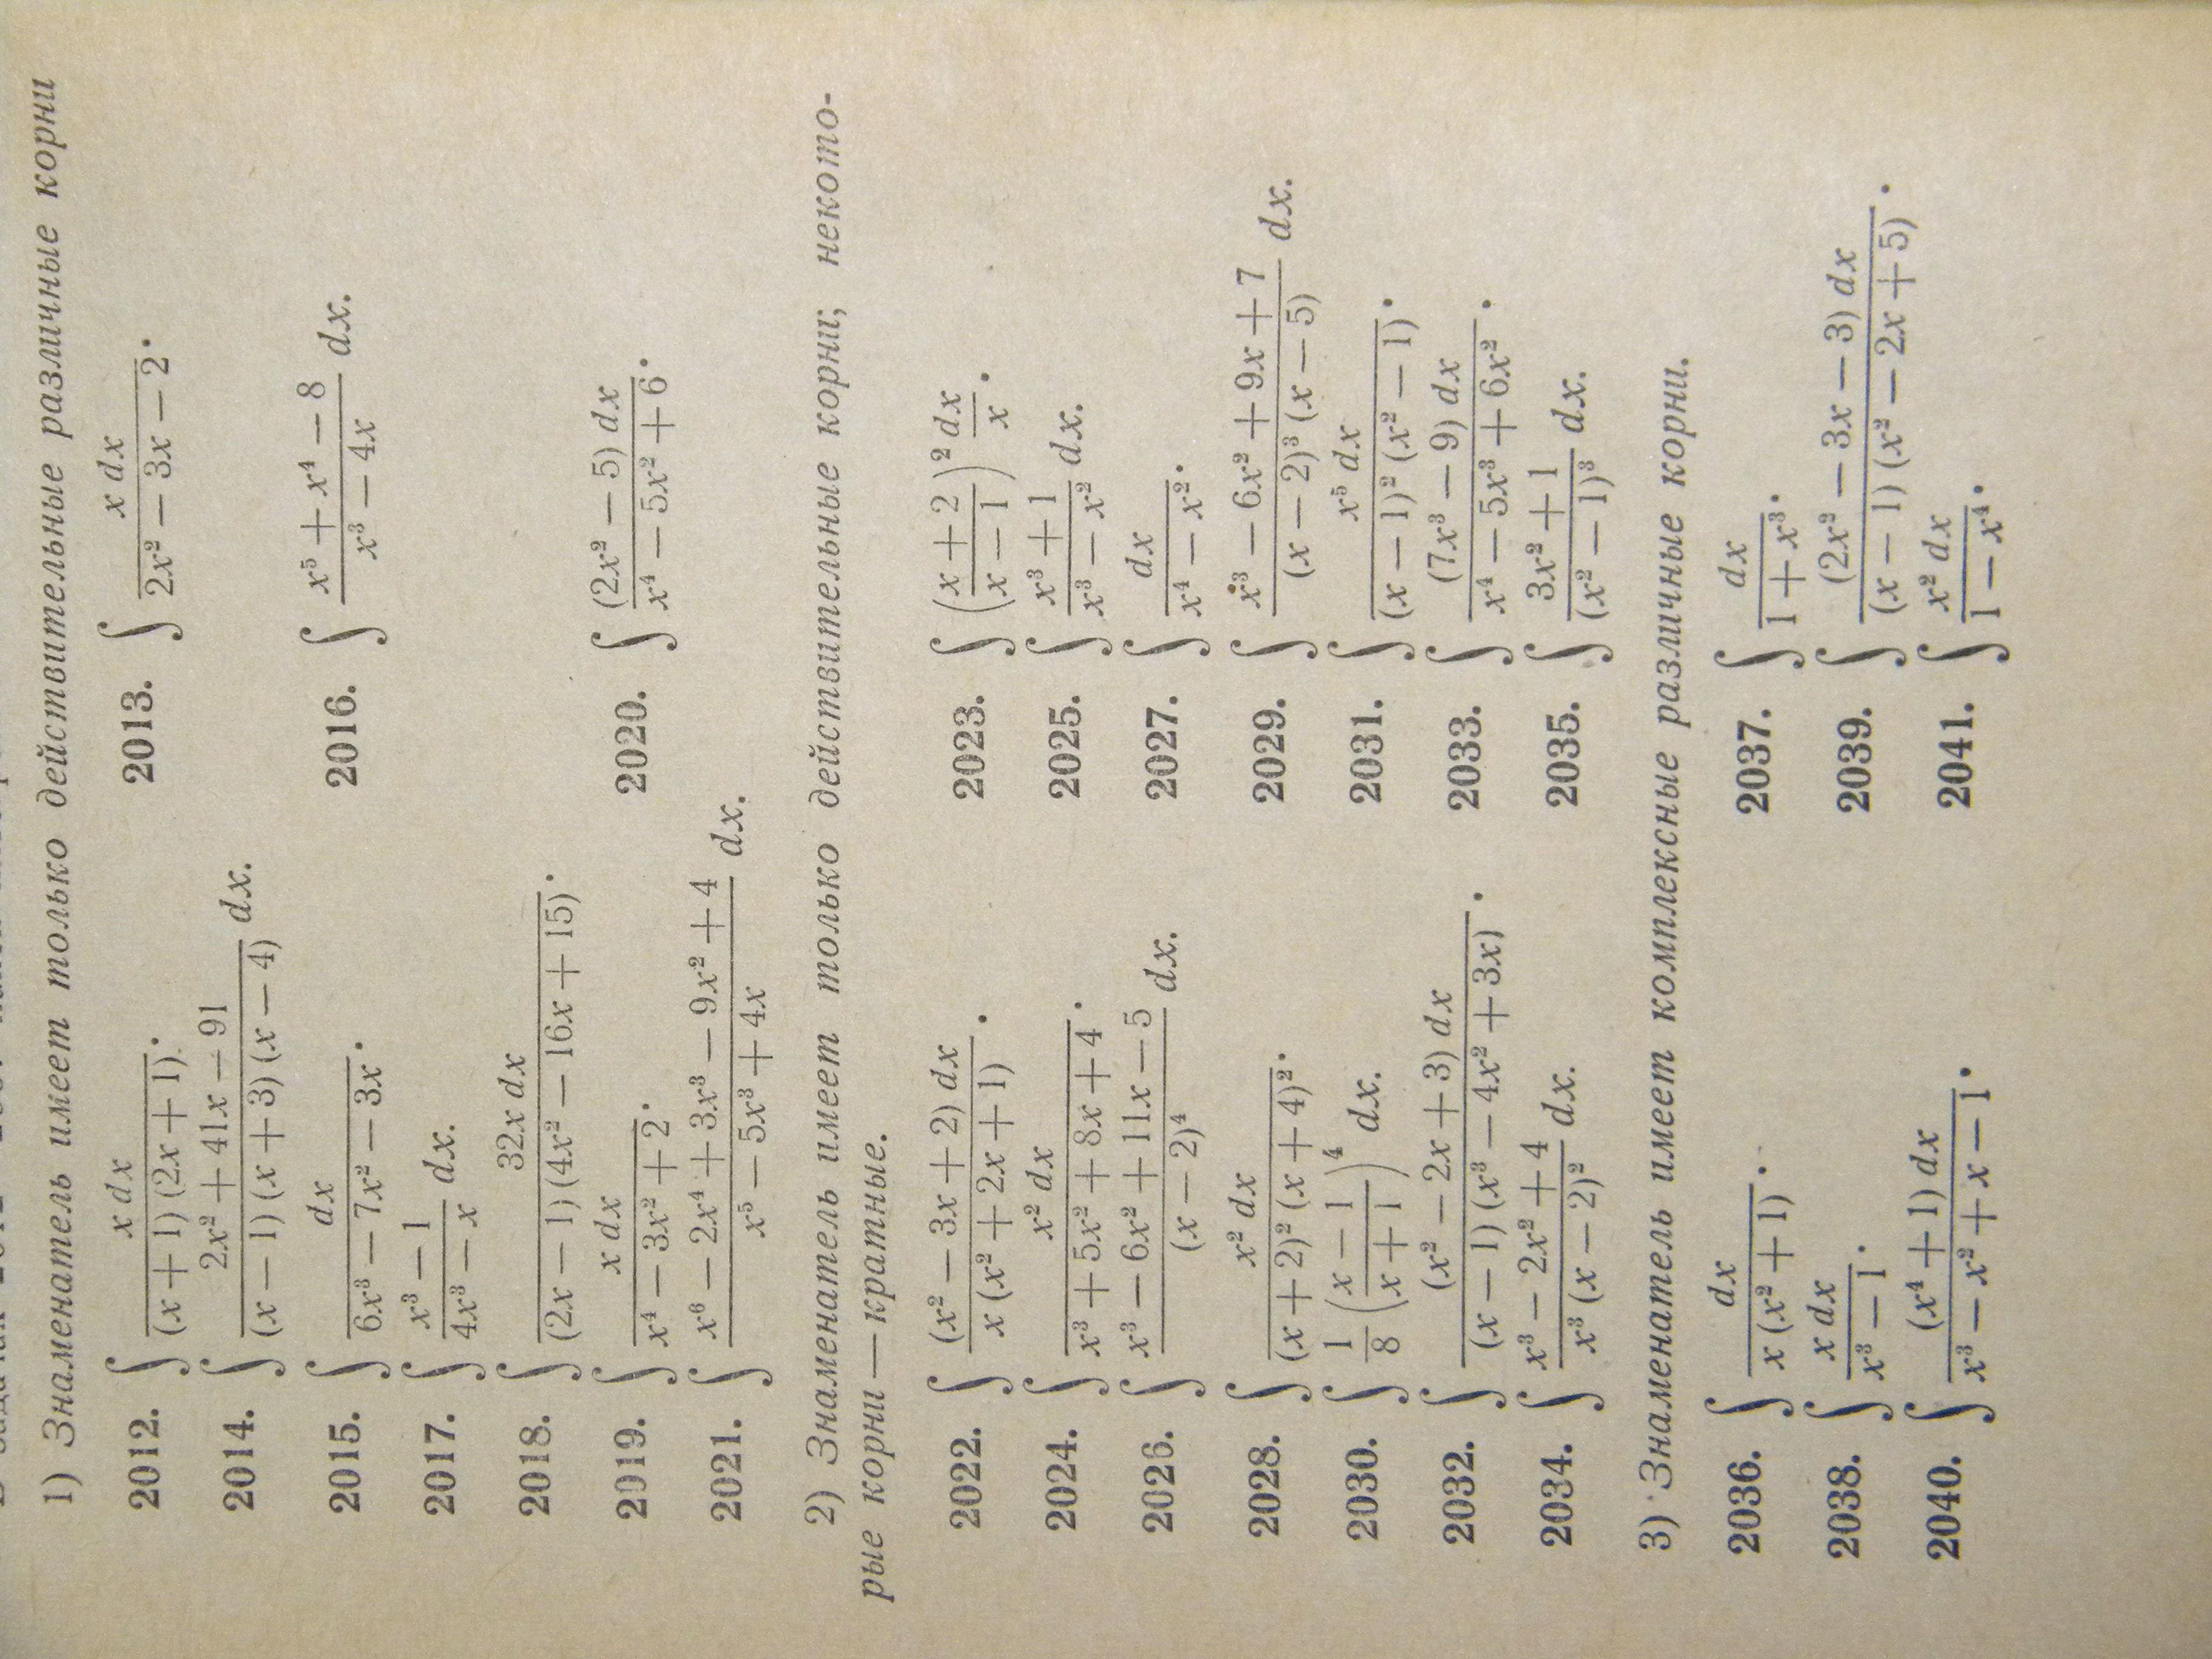 1) Знаменатель имеет только действительные различные корни
2012. ∫ x dx / ((x + 1)(2x + 1)). 2013. ∫ x dx / (2x² − 3x − 2).
2014. ∫ (2x² + 41x − 91) / ((x − 1)(x + 3)(x − 4)) dx.
2015. ∫ dx / (6x³ − 7x² − 3x). 2016. ∫ (x⁵ + x⁴ − 8) / (x³ − 4x) dx.
2017. ∫ (x³ − 1) / (4x³ − x) dx.
2018. ∫ 32x dx / ((2x − 1)(4x² − 16x + 15)).
2019. ∫ x dx / (x⁴ − 3x² + 2). 2020. ∫ (2x² − 5) dx / (x⁴ − 5x² + 6).
2021. ∫ (x⁶ − 2x⁴ + 3x³ − 9x² + 4) / (x⁵ − 5x³ + 4x) dx.
2) Знаменатель имеет только действительные корни; некото-
рые корни — кратные.
2022. ∫ (x² − 3x + 2) dx / (x (x² + 2x + 1)). 2023. ∫ ((x + 2) / (x − 1))² dx / x.
2024. ∫ x² dx / (x³ + 5x² + 8x + 4). 2025. ∫ (x³ + 1) / (x³ − x²) dx.
2026. ∫ (x³ − 6x² + 11x − 5) / (x − 2)⁴ dx. 2027. ∫ dx / (x⁴ − x²).
2028. ∫ x² dx / ((x + 2)² (x + 4)²). 2029. ∫ (x³ − 6x² + 9x + 7) / ((x − 2)³ (x − 5)) dx.
2030. ∫ 1/8 ((x − 1) / (x + 1))⁴ dx. 2031. ∫ x⁵ dx / ((x − 1)² (x² − 1)).
2032. ∫ (x² − 2x + 3) dx / ((x − 1)(x³ − 4x² + 3x)). 2033. ∫ (7x³ − 9) dx / (x⁴ − 5x³ + 6x²).
2034. ∫ (x³ − 2x² + 4) / (x³ (x − 2)²) dx. 2035. ∫ (3x² + 1) / (x² − 1)³ dx.
3) Знаменатель имеет комплексные различные корни.
2036. ∫ dx / (x (x² + 1)). 2037. ∫ dx / (1 + x³).
2038. ∫ x dx / (x³ − 1). 2039. ∫ (2x² − 3x − 3) dx / ((x − 1)(x² − 2x + 5)).
2040. ∫ (x⁴ + 1) dx / (x³ − x² + x − 1). 2041. ∫ x² dx / (1 − x⁴).